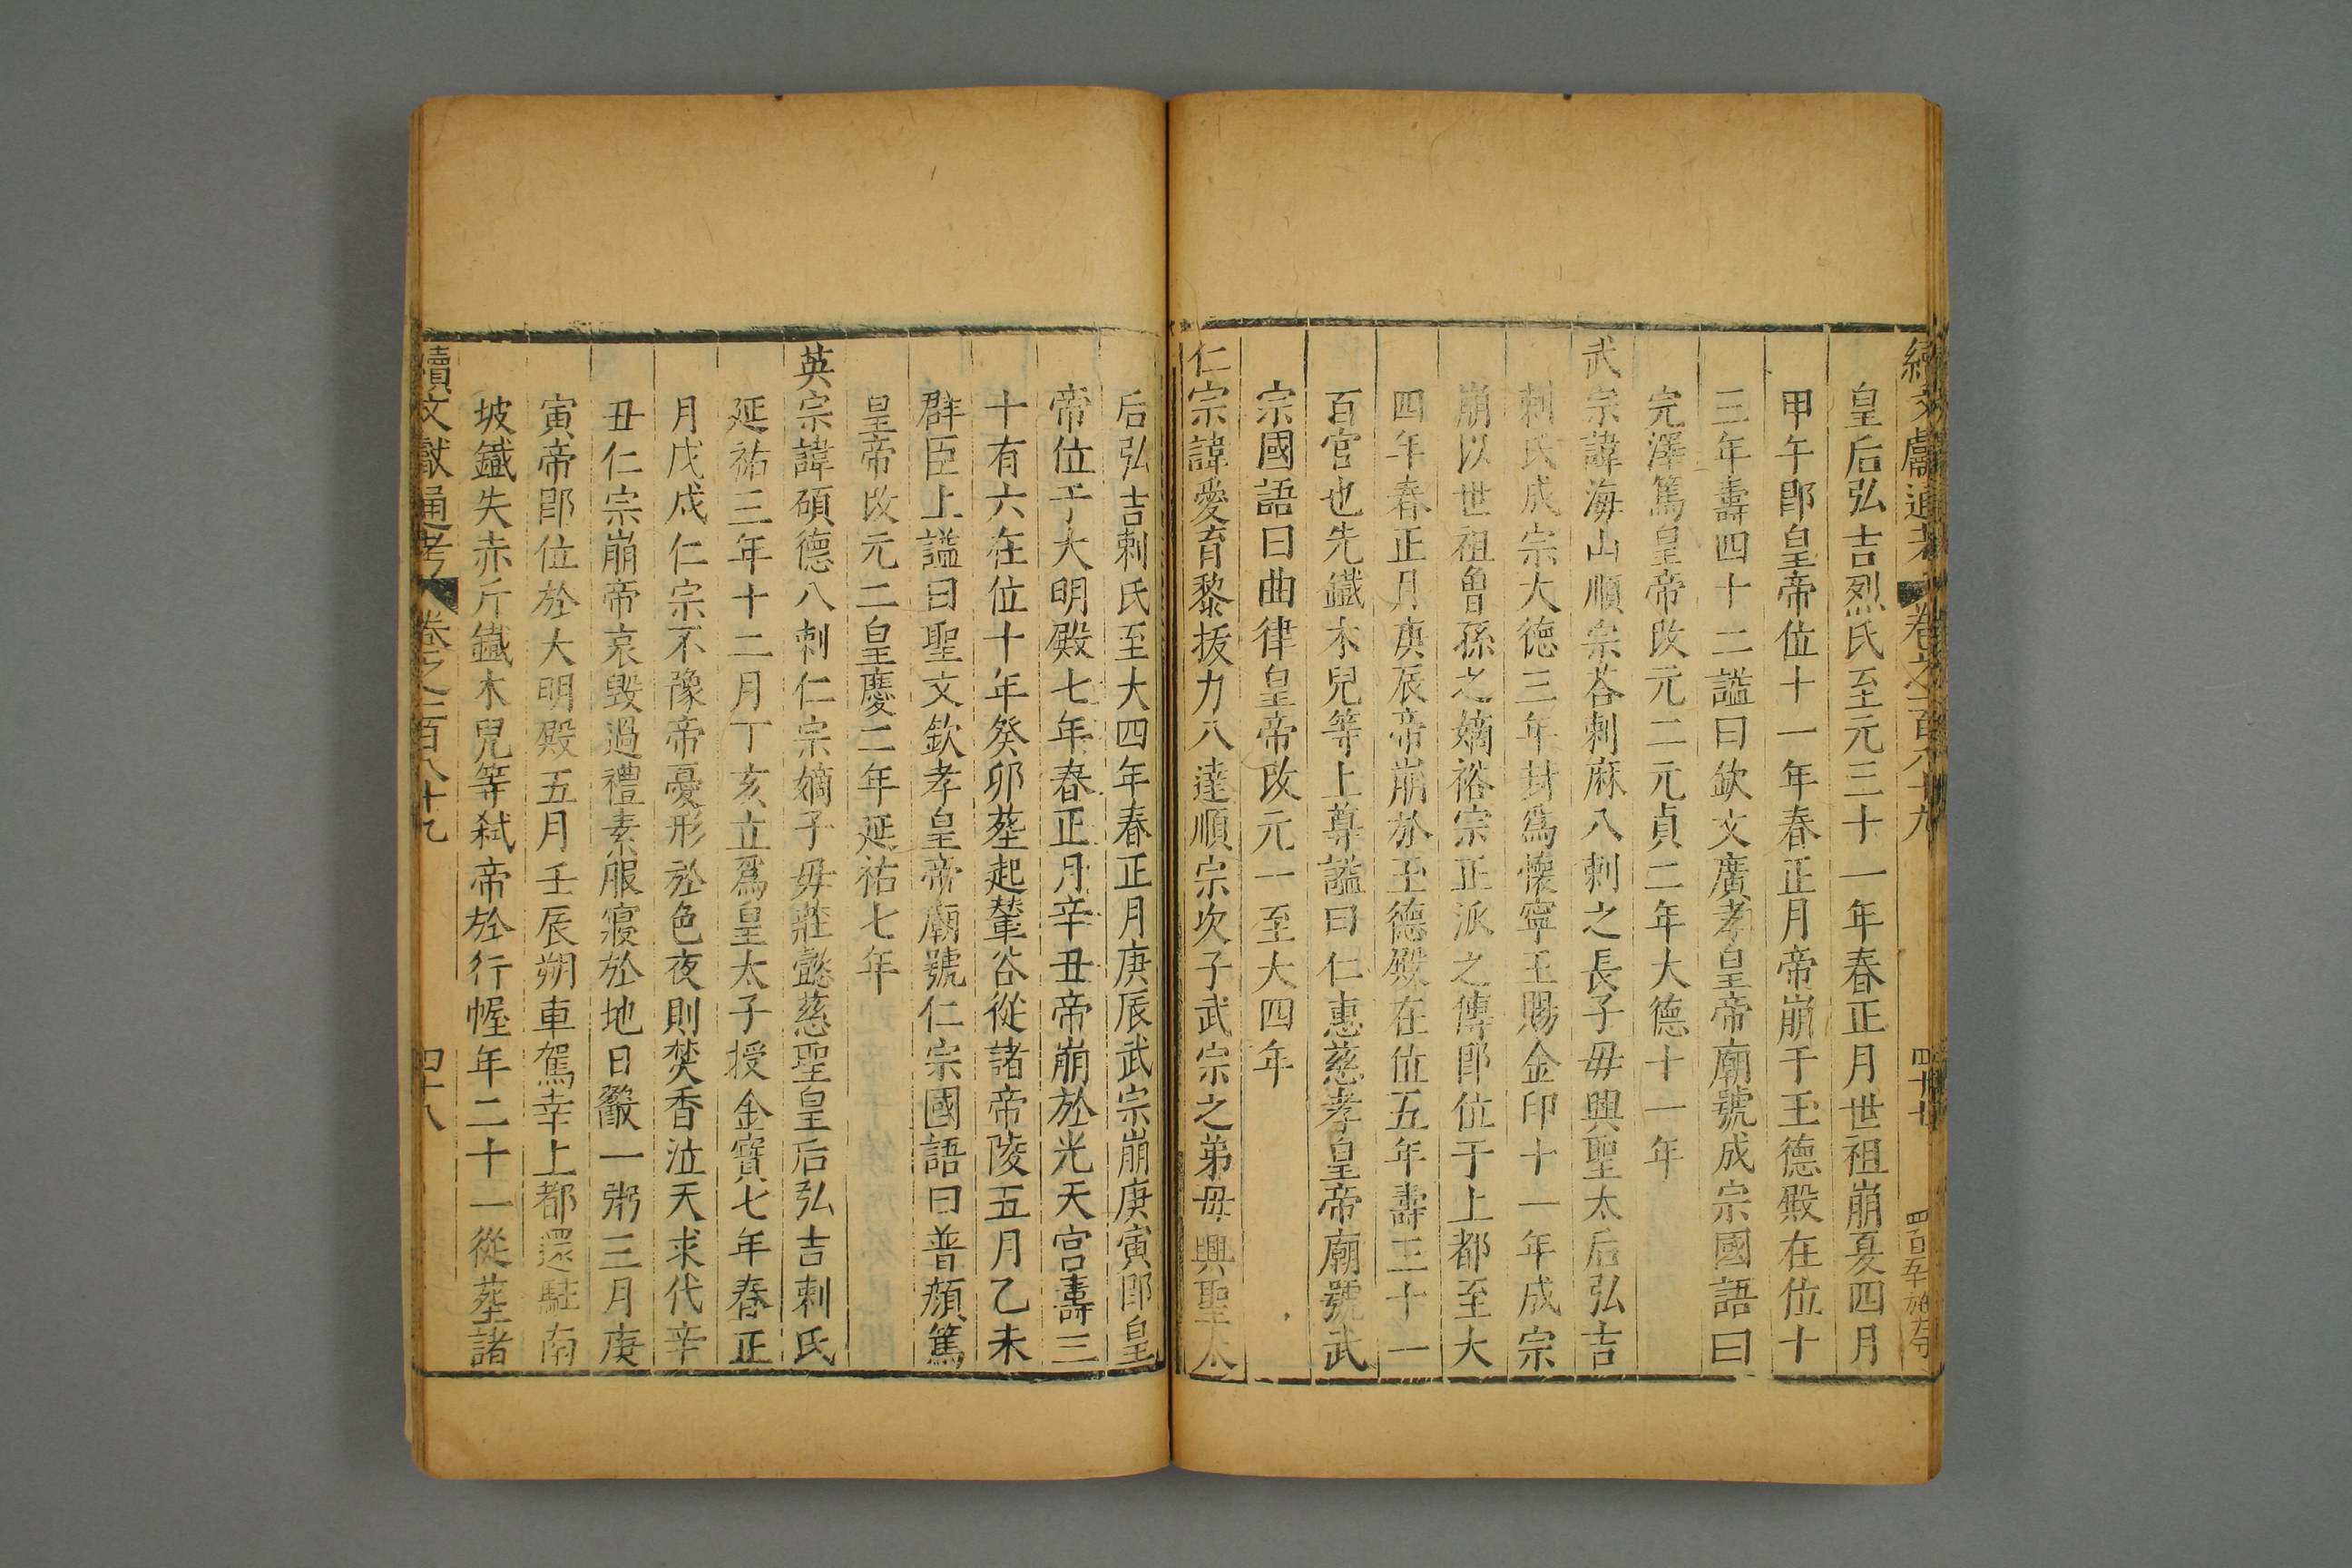 續文獻通考 卷之一百八十九 四十七
皇后弘吉烈氏至元三十一年春正月世祖崩夏四月
甲午卽皇帝位十一年春正月帝崩于玉德殿在位十
三年壽四十二謚曰欽文廣孝皇帝廟號成宗國語曰
完澤篤皇帝改元二元貞二年大德十一年
武宗諱海山順宗荅剌麻八剌之長子毋興聖太后弘吉
剌氏成宗大德三年封爲懷寧王賜金印十一年成宗
崩以世祖魯孫之嫡裕宗正派之傳卽位于上都至大
四年春正月庚辰帝崩於玉德殿在位五年壽三十一
百官也先鐵木兒等上尊謚曰仁惠慈孝皇帝廟號武
宗國語曰曲律皇帝改元一至大四年
仁宗諱愛育黎拔力八達順宗次子武宗之弟毋興聖太
后弘吉剌氏至大四年春正月庚辰武宗崩庚寅卽皇
帝位于大明殿七年春正月辛丑帝崩於光天宫壽三
十有六在位十年癸卯塟起輦谷從諸帝陵五月乙未
群臣上謚曰聖文欽孝皇帝廟號仁宗國語曰普顔篤
皇帝改元二皇慶二年延祐七年
英宗諱碩德八剌仁宗嫡子毋莊懿慈聖皇后弘吉剌氏
延祐三年十二月丁亥立爲皇太子授金寶七年春正
月戊戌仁宗不豫帝憂形於色夜則焚香泣天求代辛
丑仁宗崩帝哀毀過禮素服寢於地日歠一粥三月庚
寅帝卽位於大明殿五月壬辰朔車駕幸上都還駐南
坡鐵失赤斤鐵木兒等弑帝於行幄年二十一從塟諸
續文獻通考 卷之一百八十九 四十八